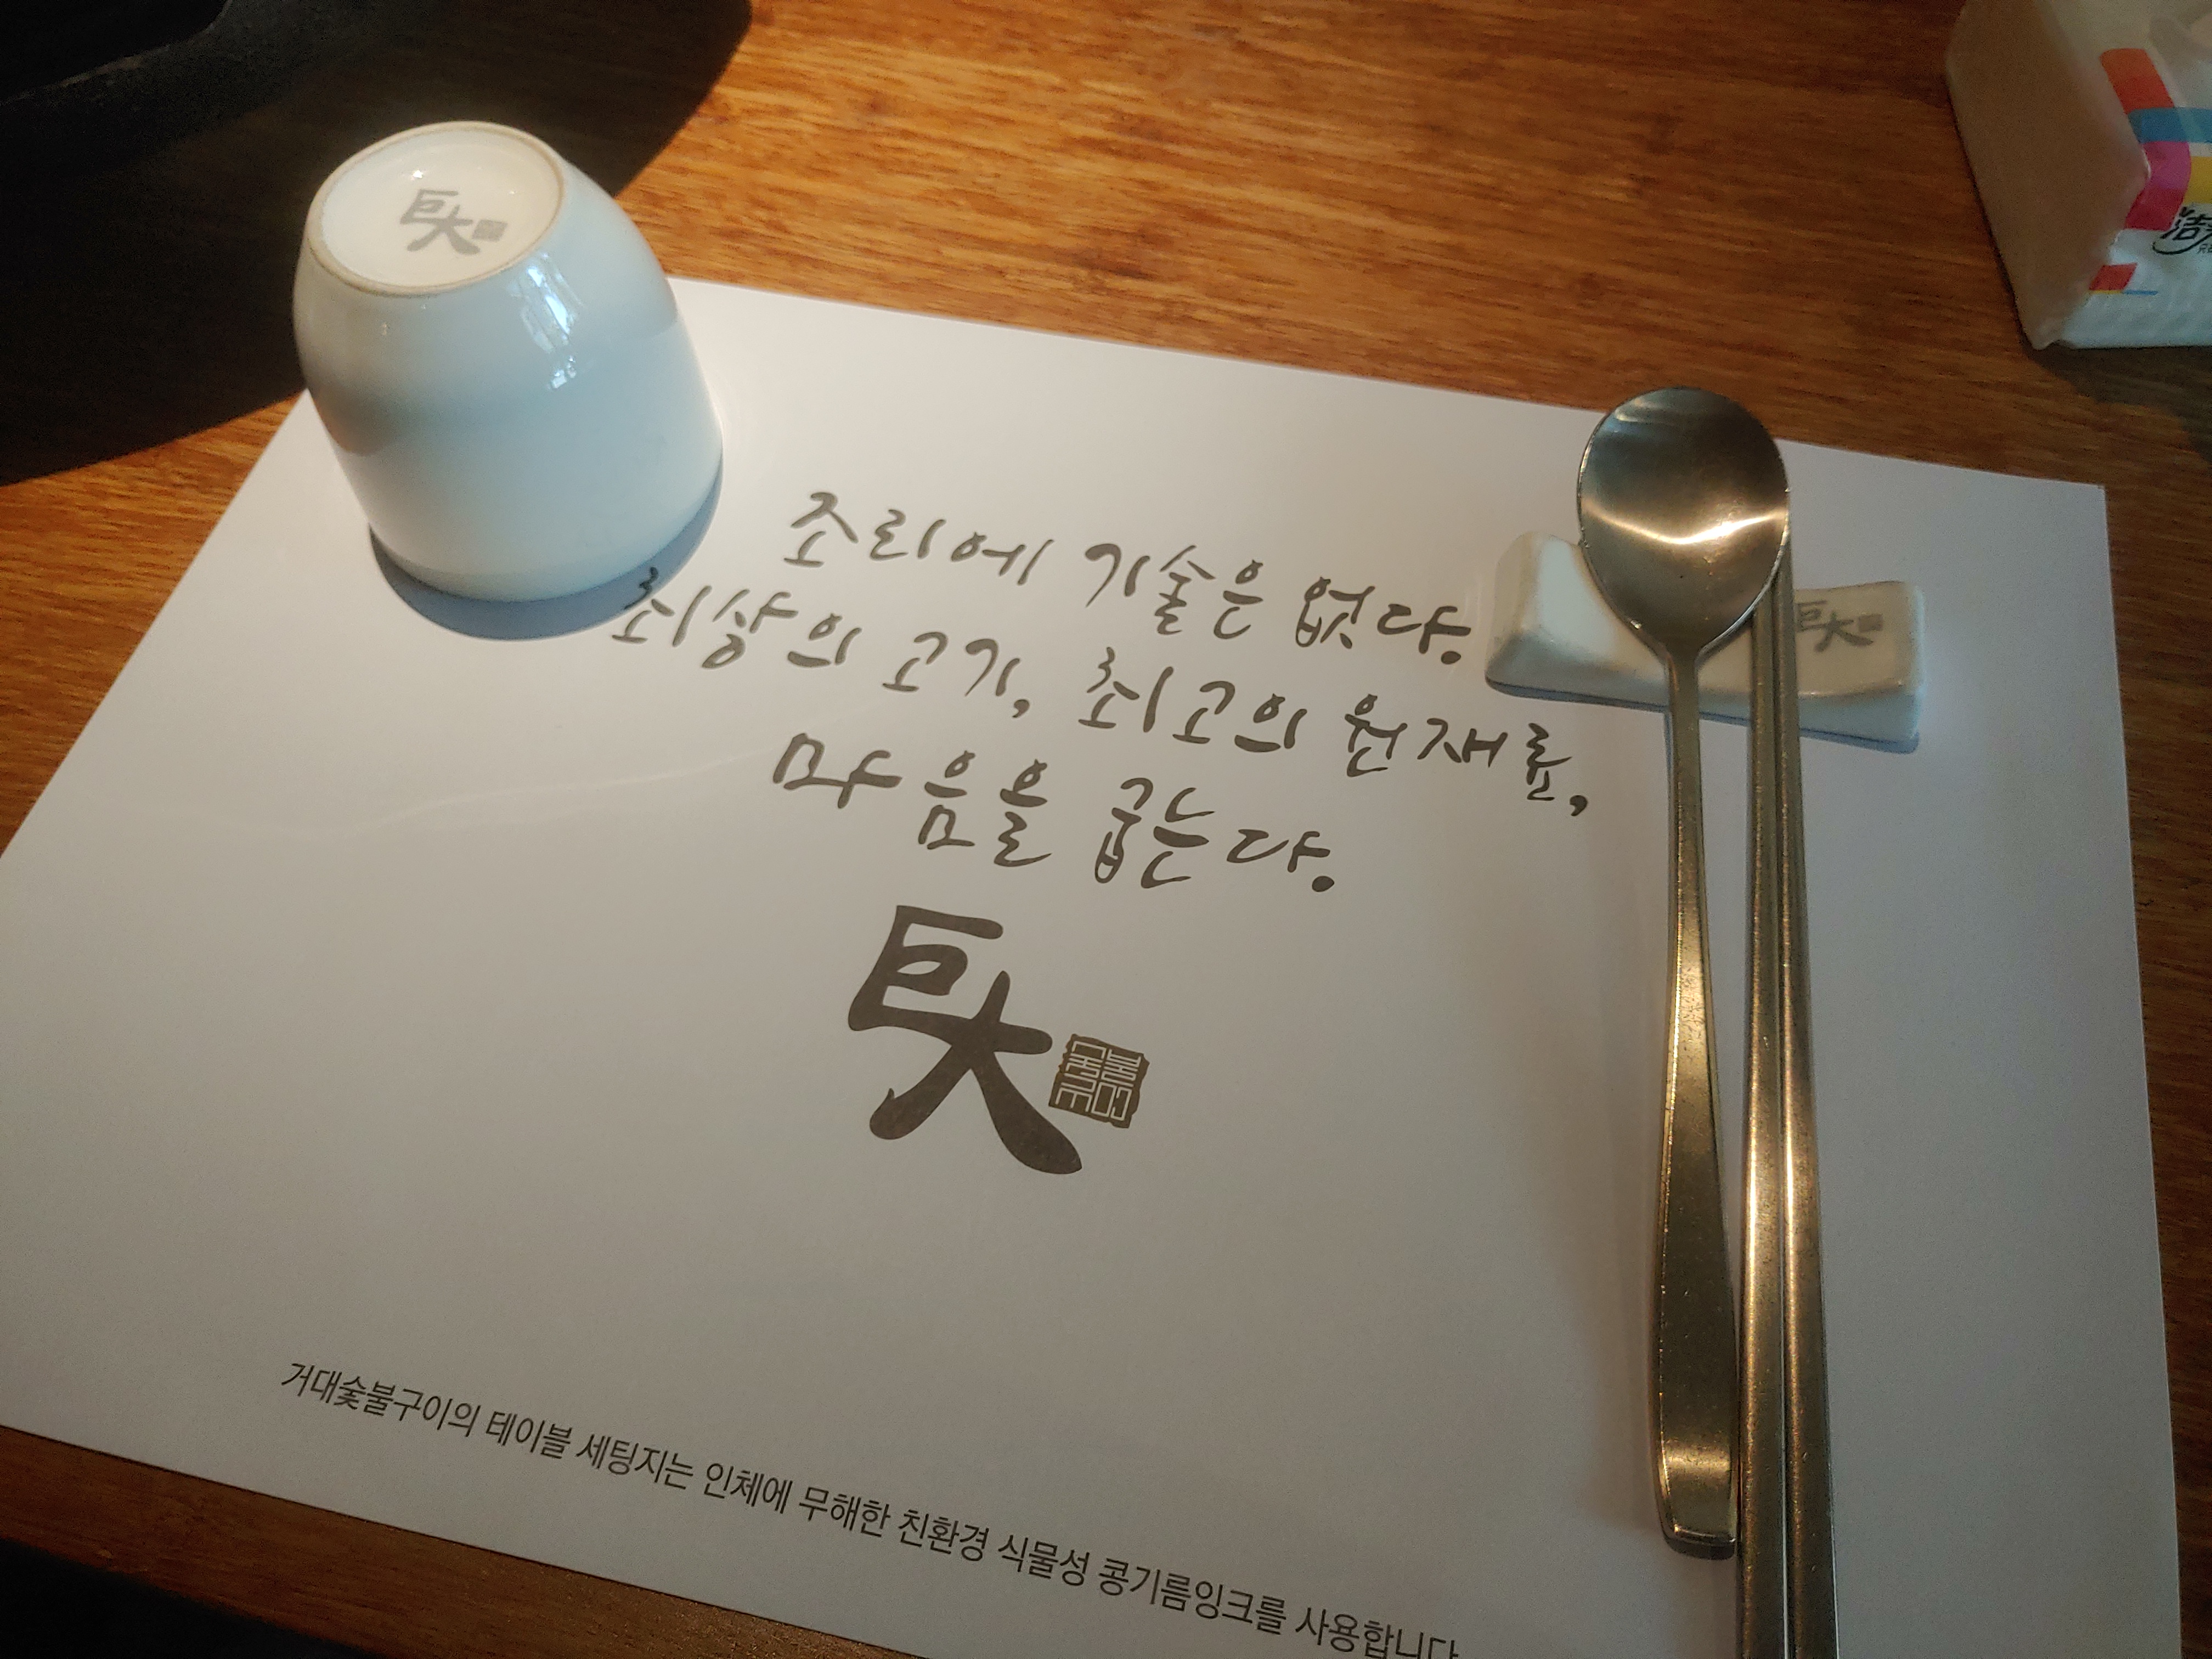 巨大
조리에 기술은 없다.
최상의 고기, 최고의 원재료,
마음을 굽는다.
巨大
숯불구이
巨大
거대숯불구이의 테이블 세팅지는 인체에 무해한 친환경 식물성 콩기름잉크를 사용합니다